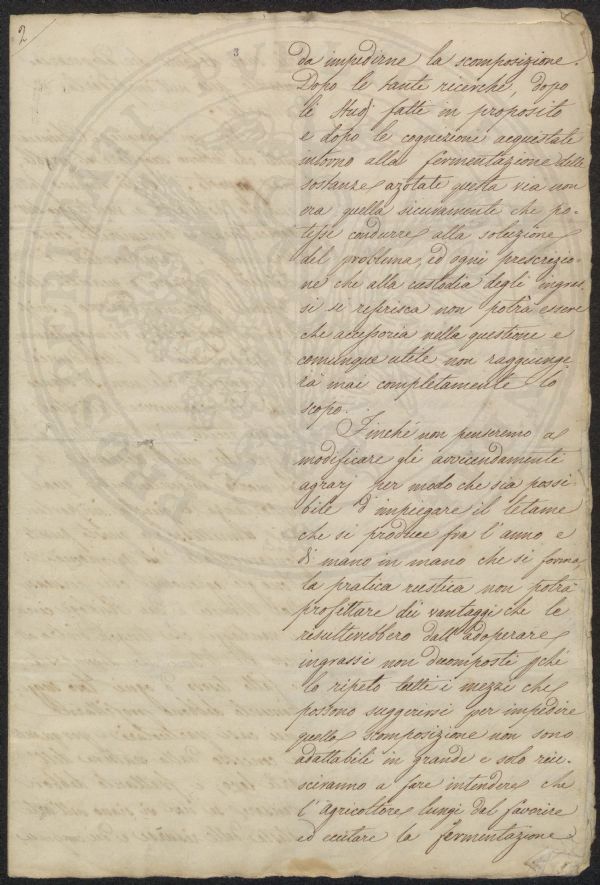 2
3
da impedirne la scomposizione.
Dopo le tante ricerche, dopo
li studj fatte in proposito
e dopo le cognizione acquestate
intorno alla fermentazione delle
sostanze azotate questa via non
era quella sicuramente che po-
tesse condurre alla soluzione
del problema, ed ogni prescrizio-
ne che alla custodia degli ingras-
si si riferisca non potrà essere
che accessoria nella questione e
comunque utile non raggiunge
rà mai completamente lo
scopo.
Finché non penseremo a
modificare gli avvicendamenti
agrarj per modo che sia possi-
bile d'impiegare il letame
che si produce fra l'anno e
di mano in mano che si forma
la pratica rustica non potrà
profittare dei vantaggi che le
resulterebbero dall'adoperare
ingrassi non decomposti
lo ripeto tutti i mezzi che
possono suggerirsi per impedire
quella scomposizione non sono
adattabili in grande e solo riu-
sciranno a fare intendere che
l'Agricoltore lungi dal favorire
ed eccitare la fermentazione